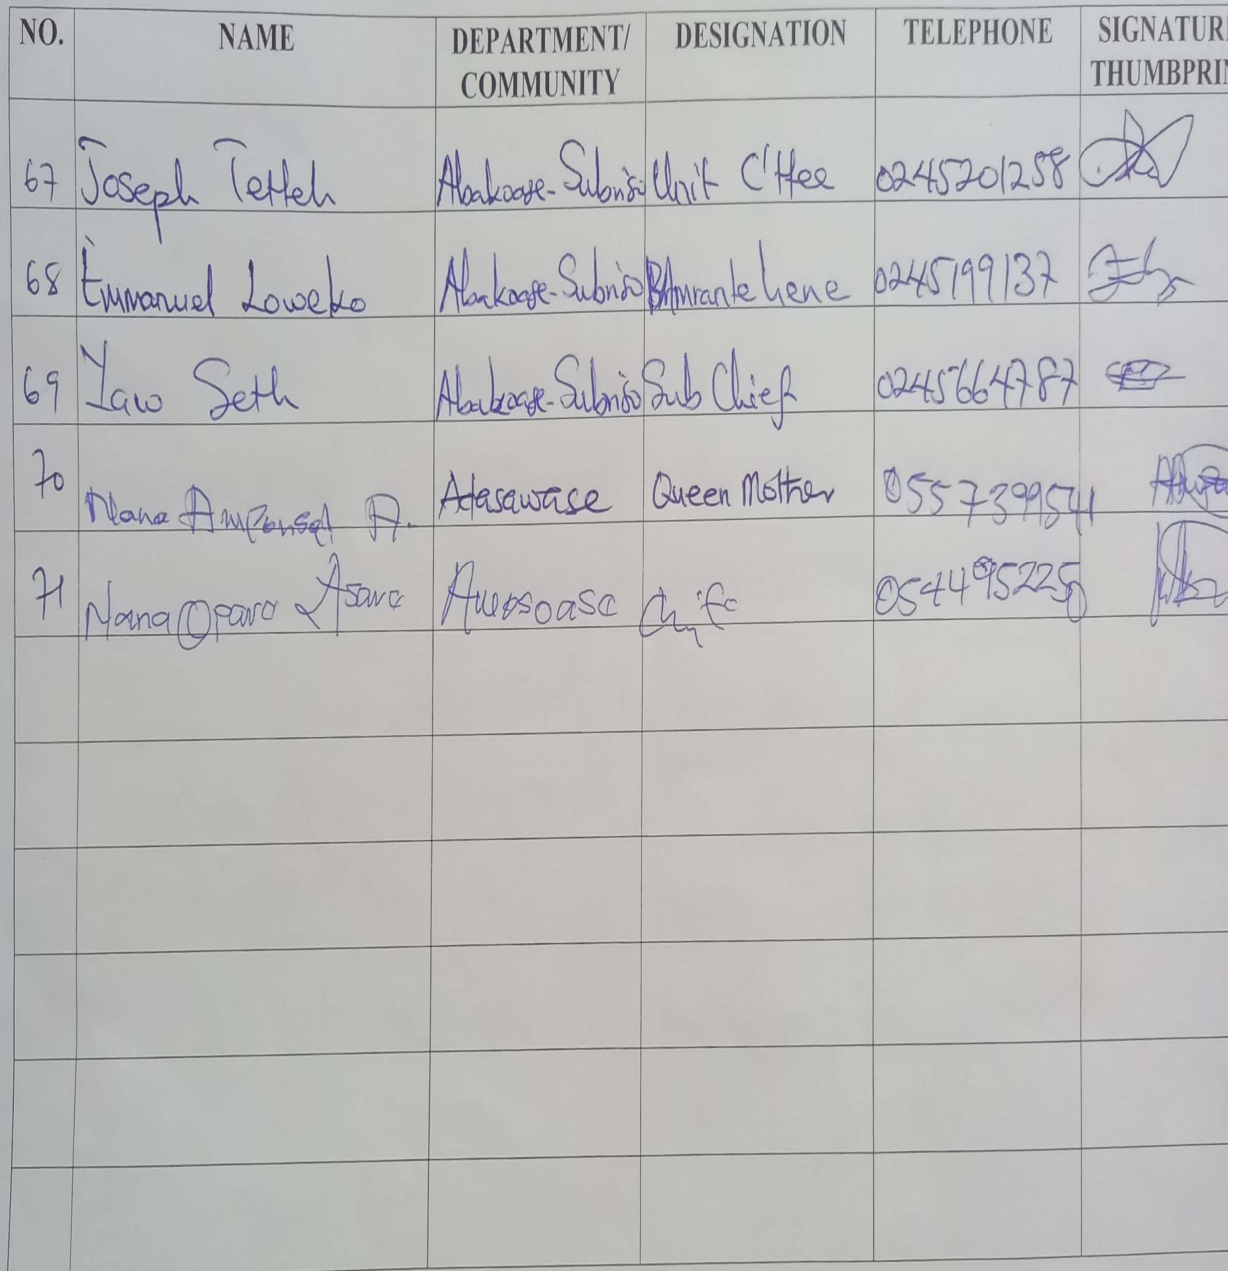 NO. NAME DEPARTMENT/ COMMUNITY DESIGNATION TELEPHONE SIGNATURE THUMBPRIN
67 Joseph Tetteh Abakoase-Subriso Unit C'ttee 0245201258
68 Emmanuel Loweko Abakoase-Subriso Amrantehene 0245199137
69 Yaw Seth Abakoase-Subriso Sub Chief 0245664787
70 Nana Amponsah A. Adasawase Queen Mother 0557399541
71 Nana Oparo Asare 0544495225